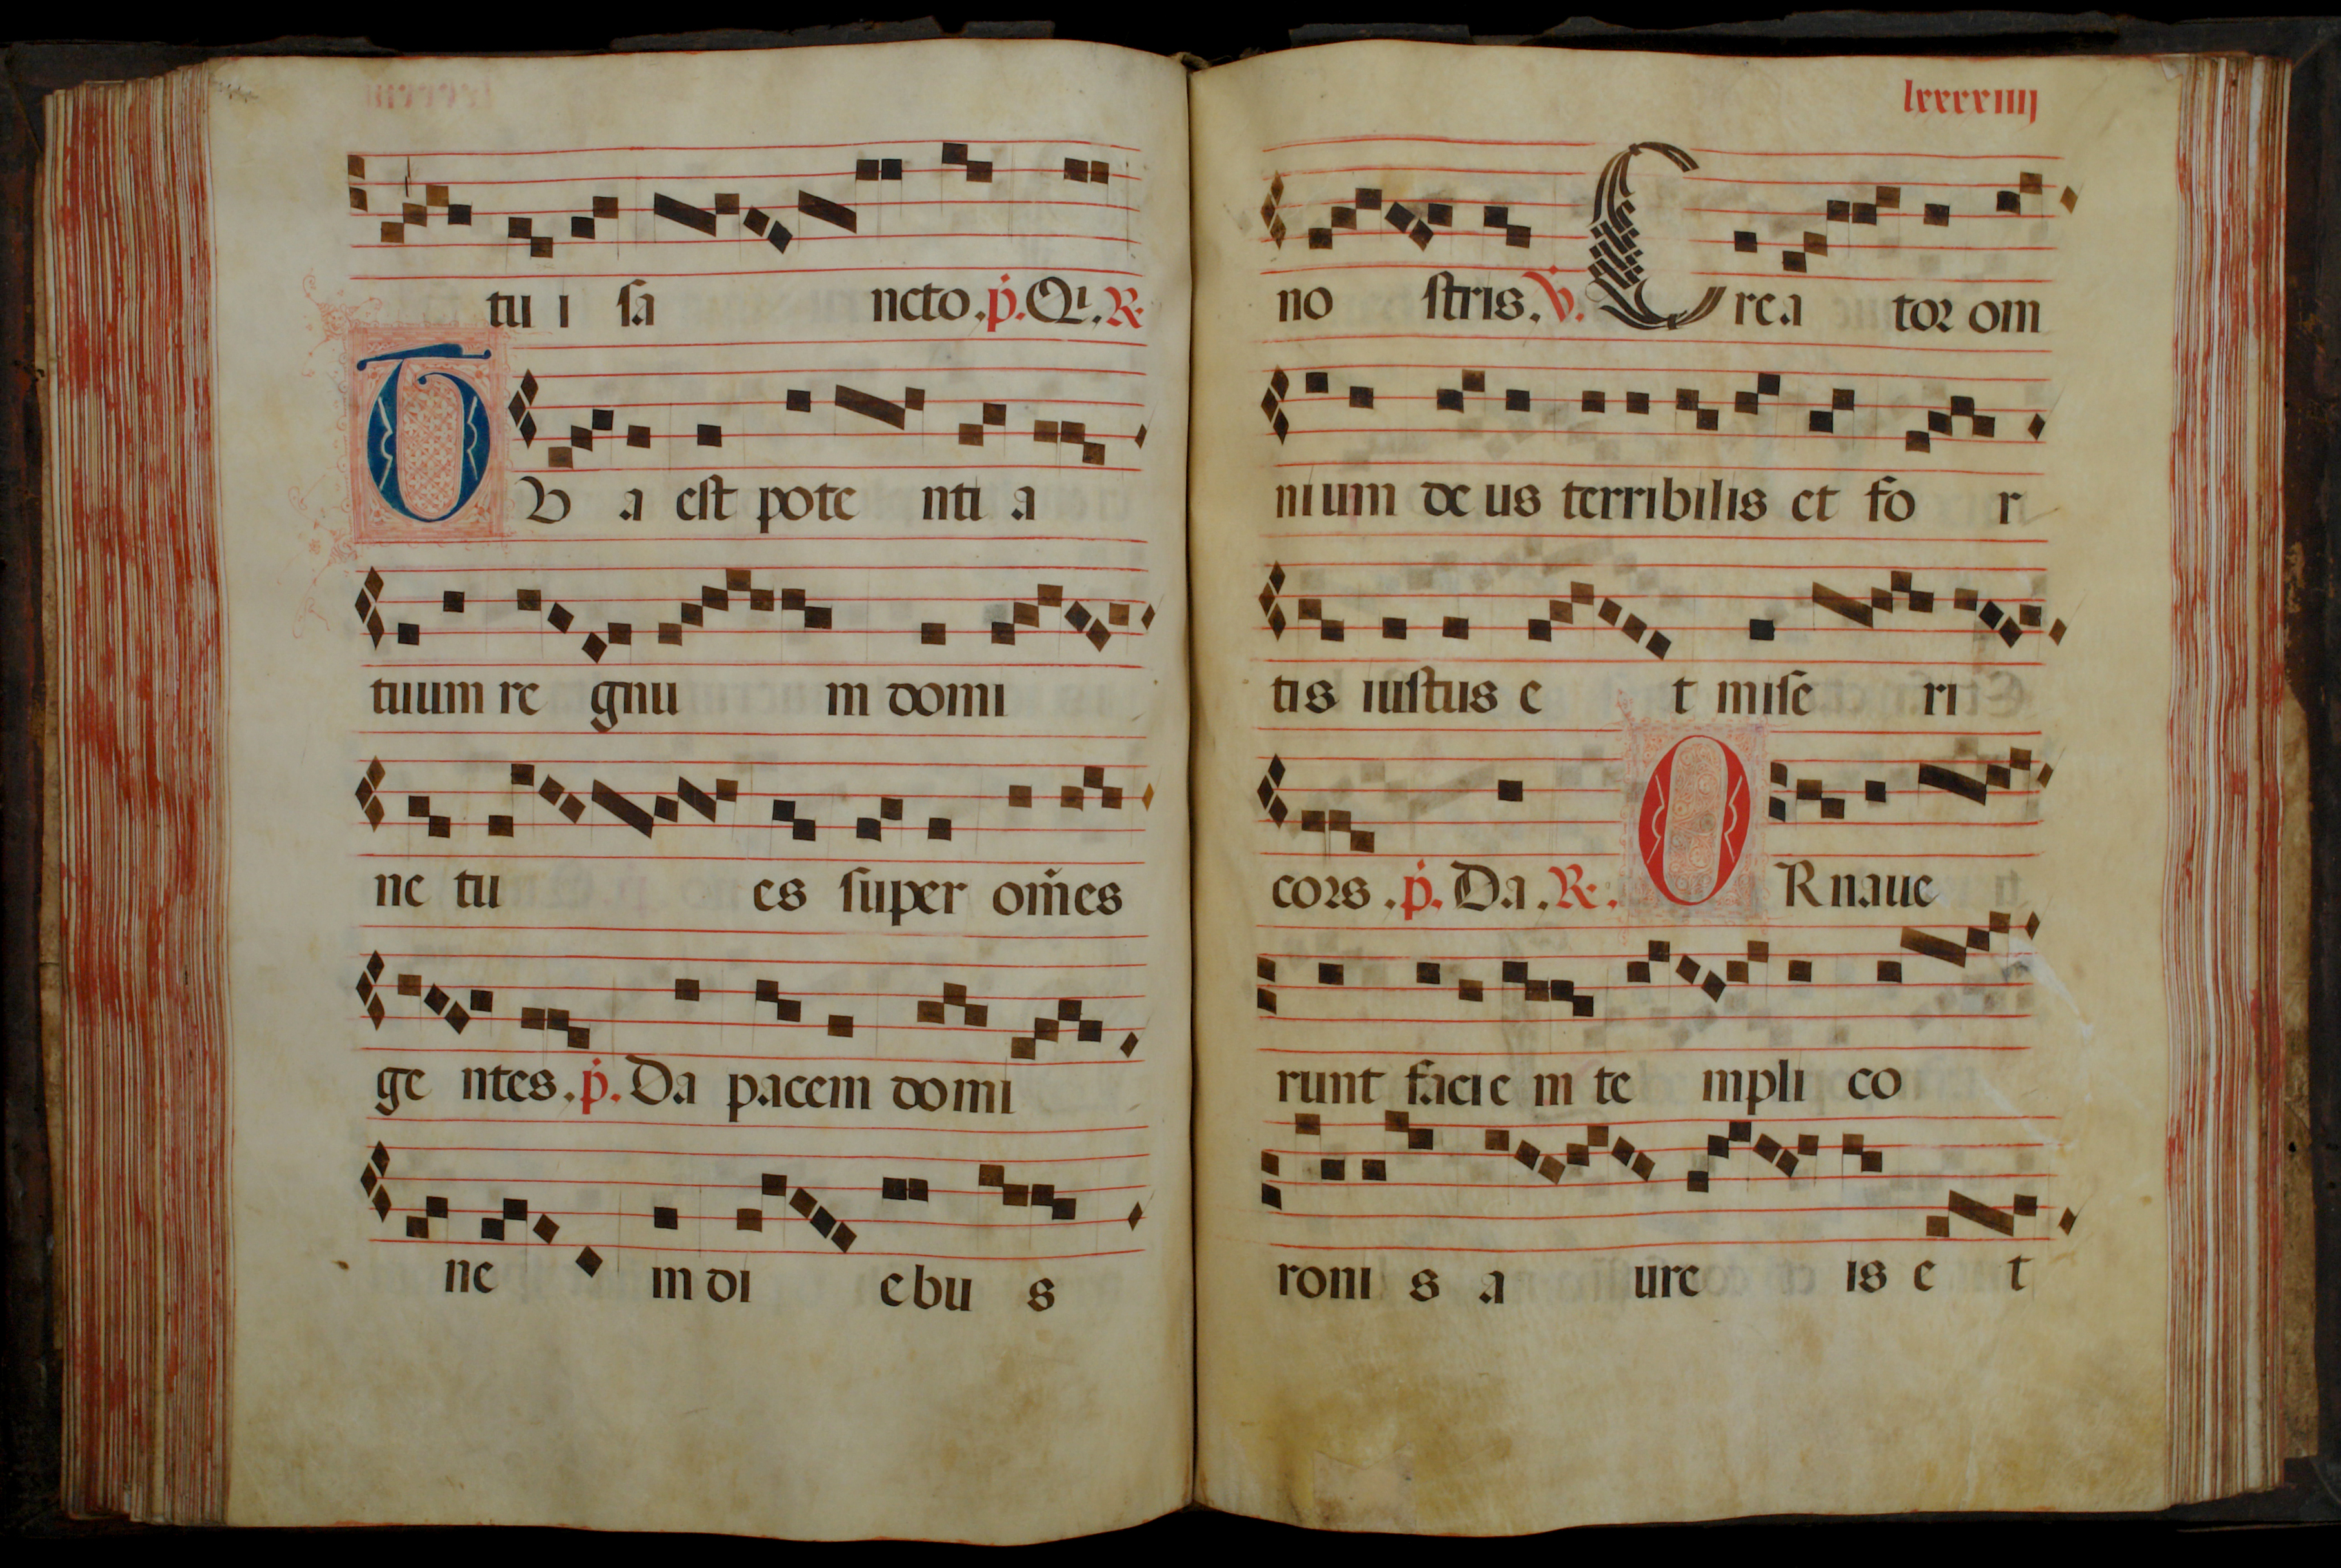 tu i sa ncto. p̓. Qi. R.
TV a est pote nti a
tuum re gnu m domi
ne tu es super om̄es
ge ntes. p̓. Da pacem domi
ne in di ebu s
lxxxxiiij
no stris. V̓. Crea tor om
nium de us terribilis et fo r
tis iustus e t mise ri
cors. p̓. Da. R. ORnaue
runt facie m te mpli co
roni s a ure is e t